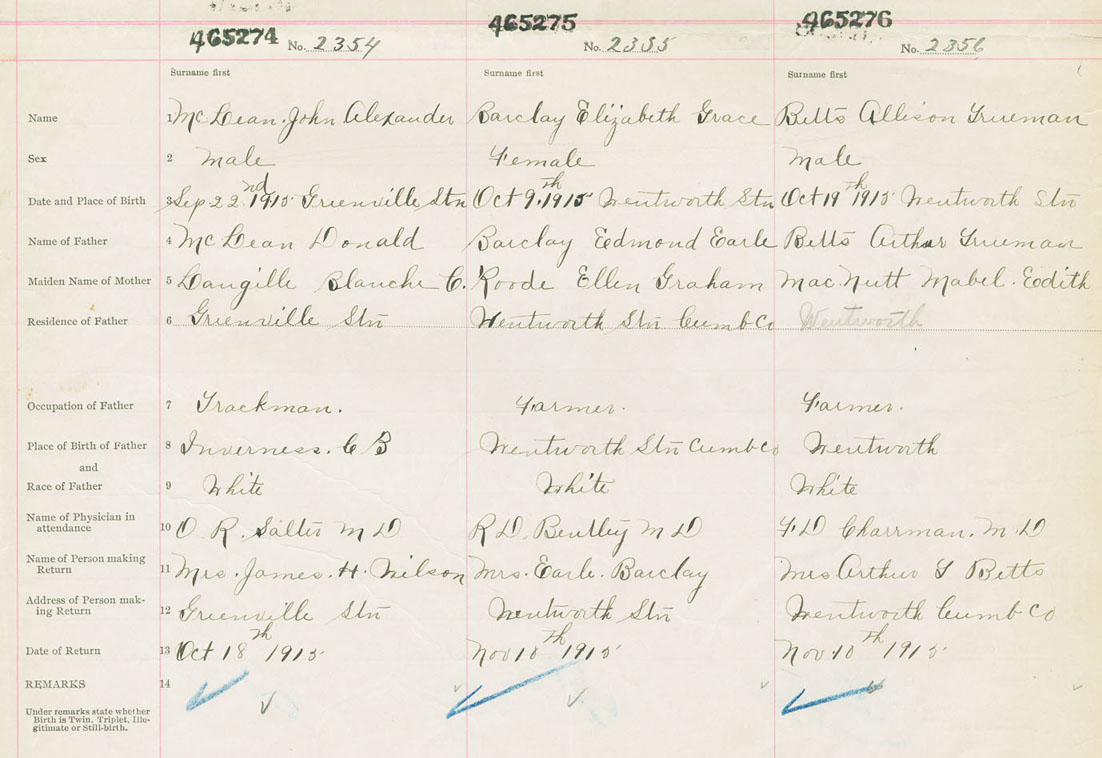 465274 No. 2354 465275 No. 2355 465276 No. 2356
Surname first Surname first Surname first
Name 1 McLean John Alexander Barclay Elizabeth Grace Betts Allison Trueman
Sex 2 male Female Male
Date and Place of Birth 3 Sep 22nd 1915 Greenville Stn Oct 9th 1915 Wentworth Stn Oct 19th 1915 Wentworth Stn
Name of Father 4 McLean Donald Barclay Edmond Earle Betts Arthur Trueman
Maiden Name of Mother 5 Langille Blanche C. Roode Ellen Graham MacNutt Mabel Eodith
Residence of Father 6 Greenville Stn Wentworth Stn Cumb Co Wentworth
Occupation of Father 7 Trackman. Farmer. Farmer.
Place of Birth of Father 8 Inverness. C B Wentworth Stn Cumb Co Wentworth
and
Race of Father 9 White White White
Name of Physician in
attendance 10 O. R. Salter M D R D Bentley M D F D Charman. M. D
Name of Person making
Return 11 Mrs. James. H. Wilson Mrs. Earle. Barclay Mrs Arthur T Betts
Address of Person mak-
ing Return 12 Greenville Stn Wentworth Stn Wentworth Cumb Co
Date of Return 13 Oct 18th 1915 Nov 10th 1915 Nov 10th 1915
REMARKS 14
Under remarks state whether
Birth is Twin, Triplet, Ille-
gitimate or Still-birth.